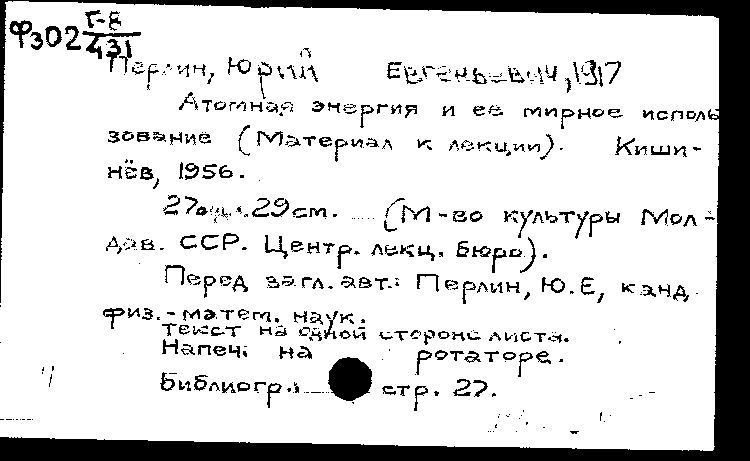 Фз02 Г-8
431
Перлин, Юрий Евгеньевич, 1917
Атомная энергия и ее мирное исполь
зование (Материал к лекции). Киши-
нёв, 1956.
29 см. (М-во культуры Мол-
дав. ССР. Центр. лекц. бюро).
Перед загл. авт.: Перлин, Ю.Е, канд
физ.-матем. наук.
текст на одной стороне листа.
Напеч. на ротаторе.
Библиогр.: стр. 27.